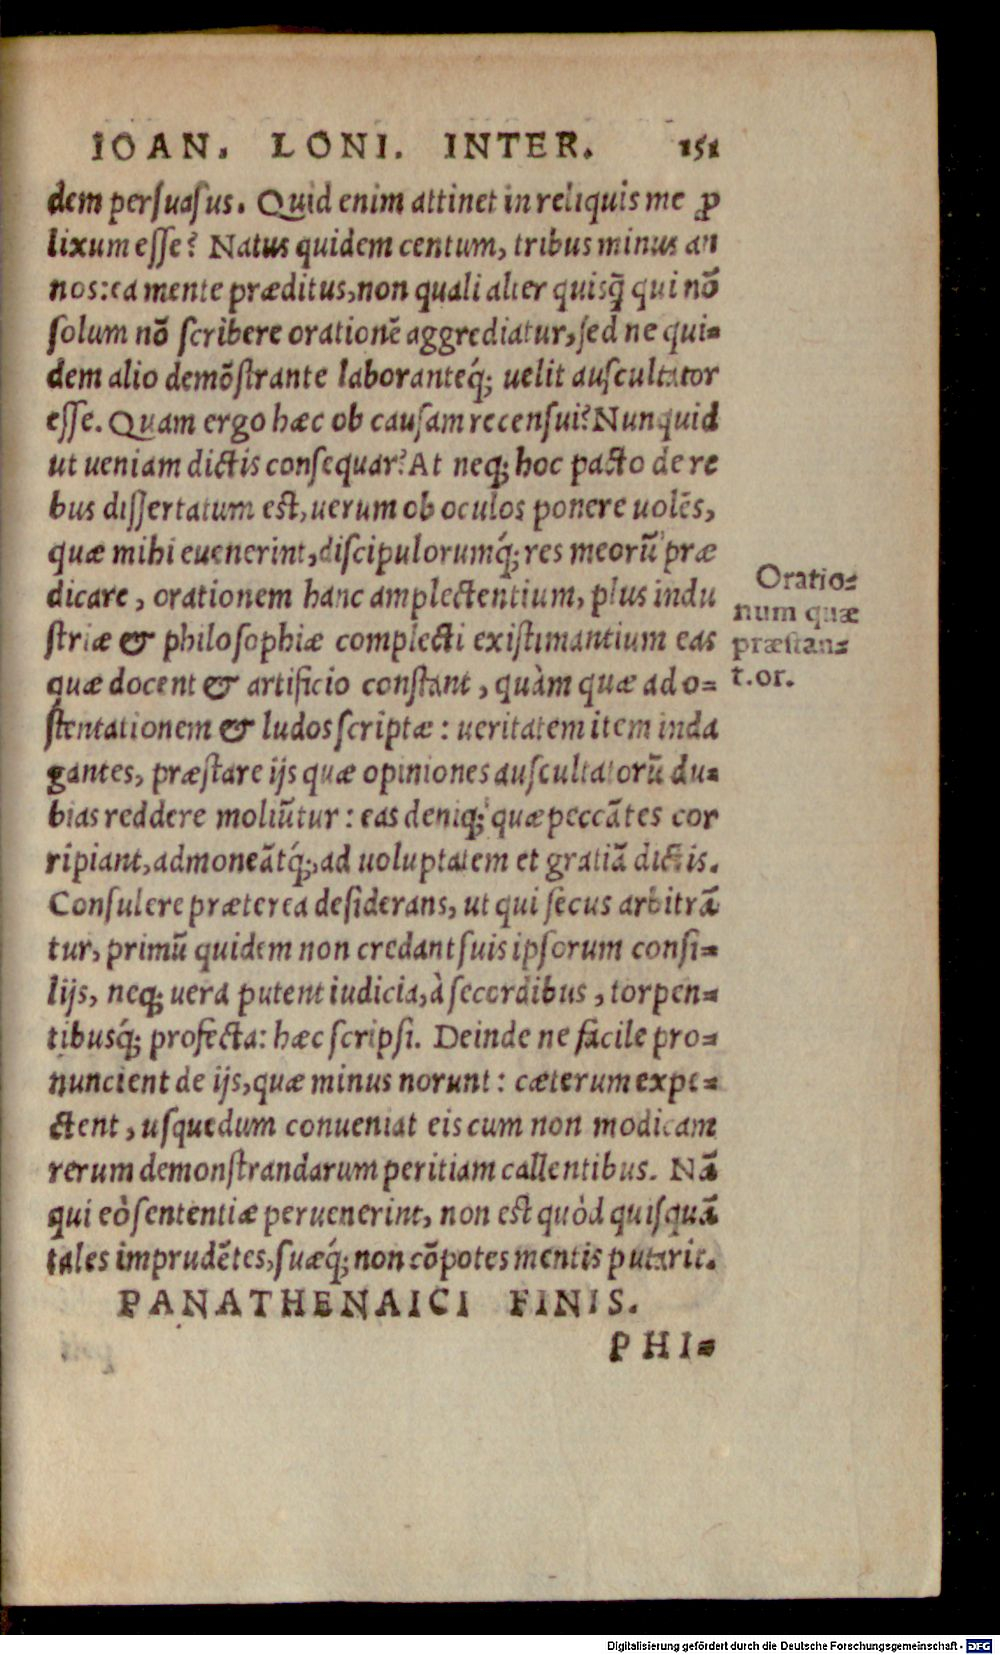 IOAN. LONI. INTER. 151
dem persuasus. Quid enim attinet in reliquis me ꝓ
lixum esse? Natus quidem centum, tribus minus an
nos: ea mente præditus, non quali alter quisq̃ qui nõ
solum nõ scribere orationẽ aggrediatur, sed ne qui-
dem alio demõstrante laboranteq́; uelit auscultator
esse. Quam ergo hæc ob causam recensui? Nunquid
ut ueniam dictis consequar? At neq; hoc pacto de re
bus dissertatum est, uerum ob oculos ponere uolẽs,
quæ mihi euenerint, discipulorumq́; res meorũ præ
dicare, orationem hanc amplectentium, plus indu
striæ & philosophiæ complecti existimantium eas
quæ docent & artificio constant, quàm quæ ad o-
stentationem & ludos scriptæ: ueritatem item inda
gantes, præstare ijs quæ opiniones auscultatorũ du-
bias reddere moliũtur: eas deniq; quæ peccãtes cor
ripiant, admoneãtq́;, ad uoluptatem et gratiã dictis.
Consulere præterea desiderans, ut qui secus arbitrã
tur, primũ quidem non credant suis ipsorum consi-
lijs, neq; uera putent iudicia, à secordibus, torpen-
tibusq́; profecta: hæc scripsi. Deinde ne facile pro-
nuncient de ijs, quæ minus norunt: cæterum expe-
ctent, usquedum conueniat eis cum non modicam
rerum demonstrandarum peritiam callentibus. Nã
qui eò sententiæ peruenerint, non est quòd quisquã
tales imprudẽtes, suæq́; non cõpotes mentis putarit.
PANATHENAICI FINIS.
PHI-
Oratio-
num quæ
præstan-
t.or.
Digitalisierung gefördert durch die Deutsche Forschungsgemeinschaft - DFG